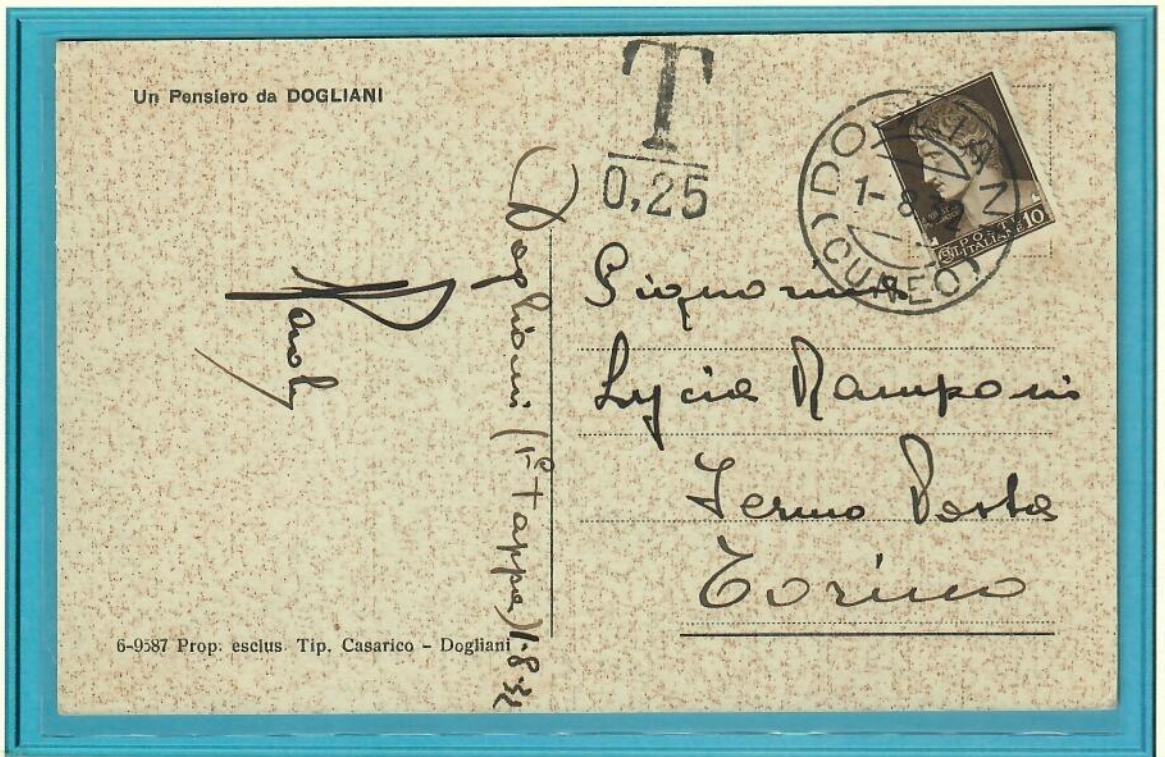 Un Pensiero da DOGLIANI
T
0,25
DOGLIANI
1-8
(CUNEO)
POSTE
ITALIANE
10
Dogliani (1ª Tappa) 1-8-32
Signorina
Lycia Ramponi
Fermo Posta
Torino
6-9587 Prop. esclus. Tip. Casarico - Dogliani